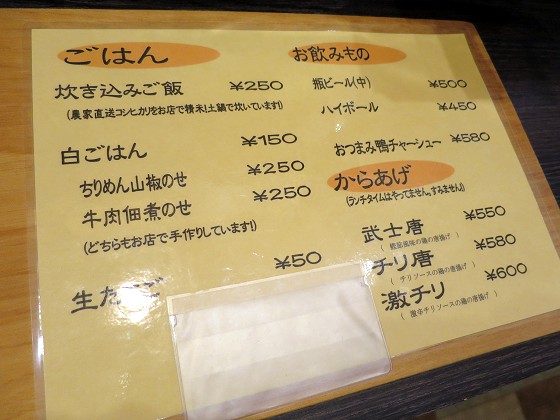 ごはん
炊き込みご飯 ¥250
(農家直送コシヒカリをお店で精米!土鍋で炊いています!)
白ごはん ¥150
ちりめん山椒のせ ¥250
牛肉佃煮のせ ¥250
(どちらもお店で手作りしています!)
生たまご ¥50
お飲みもの
瓶ビール(中) ¥500
ハイボール ¥450
おつまみ鴨チャーシュー ¥580
からあげ
(ランチタイムはやってません。すみません!)
武士唐 ¥550
風味の鶏の唐揚げ )
チリ唐 ¥580
( チリソースの鶏の唐揚げ )
激チリ ¥600
( 激辛チリソースの鶏の唐揚げ )